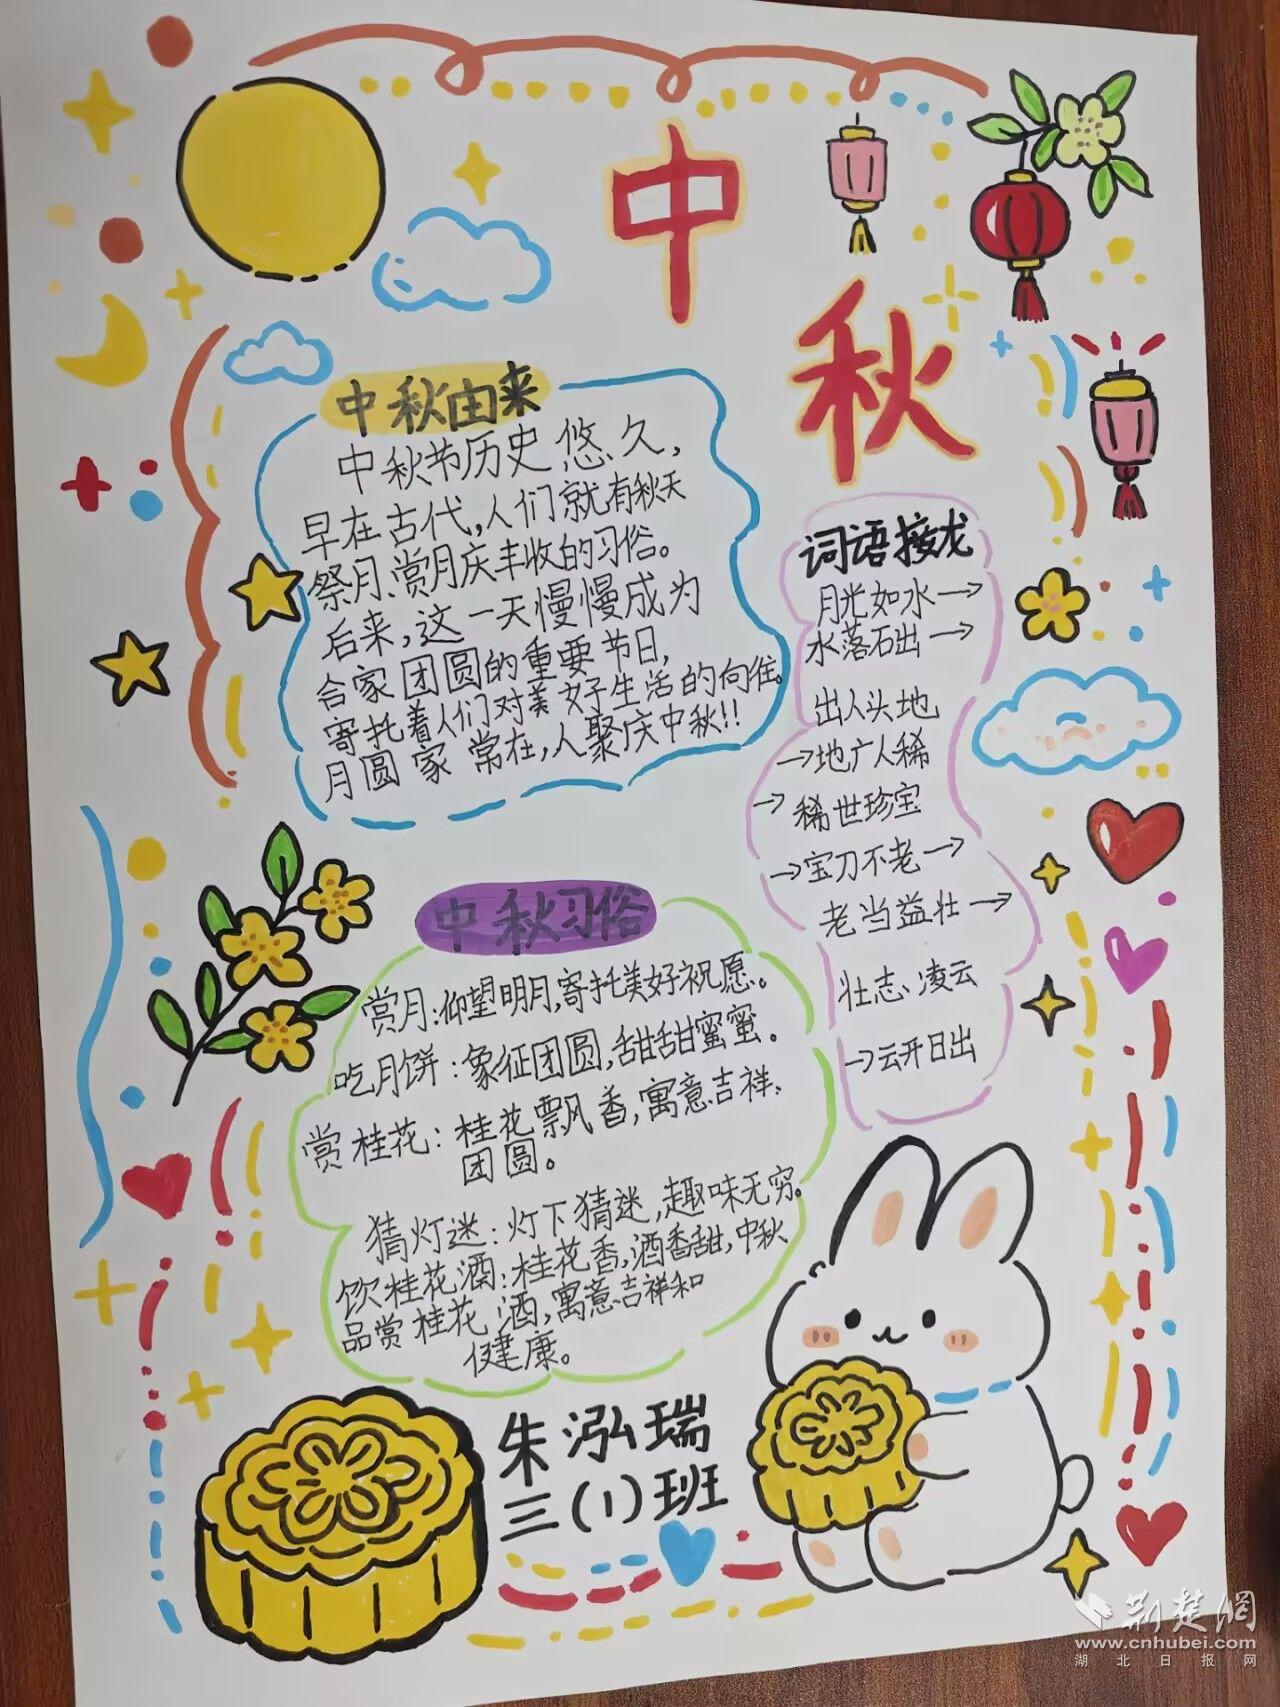 中
秋
中秋由来
中秋节历史悠久,
早在古代,人们就有秋天
祭月、赏月庆丰收的习俗。
后来,这一天慢慢成为
合家团圆的重要节日,
寄托着人们对美好生活的向往。
月圆家常在,人聚庆中秋!!
词语接龙
月光如水→
水落石出→
出人头地
→地广人稀
→稀世珍宝
→宝刀不老→
老当益壮→
壮志凌云
→云开日出
中秋习俗
赏月:仰望明月,寄托美好祝愿。
吃月饼:象征团圆,甜甜蜜蜜。
赏桂花:桂花飘香,寓意吉祥、
团圆。
猜灯迷:灯下猜迷,趣味无穷。
饮桂花酒:桂花香,酒香甜,中秋
品赏桂花酒,寓意吉祥和
健康。
朱泓瑞
三(1)班
荆楚网
www.cnhubei.com
湖北日报网